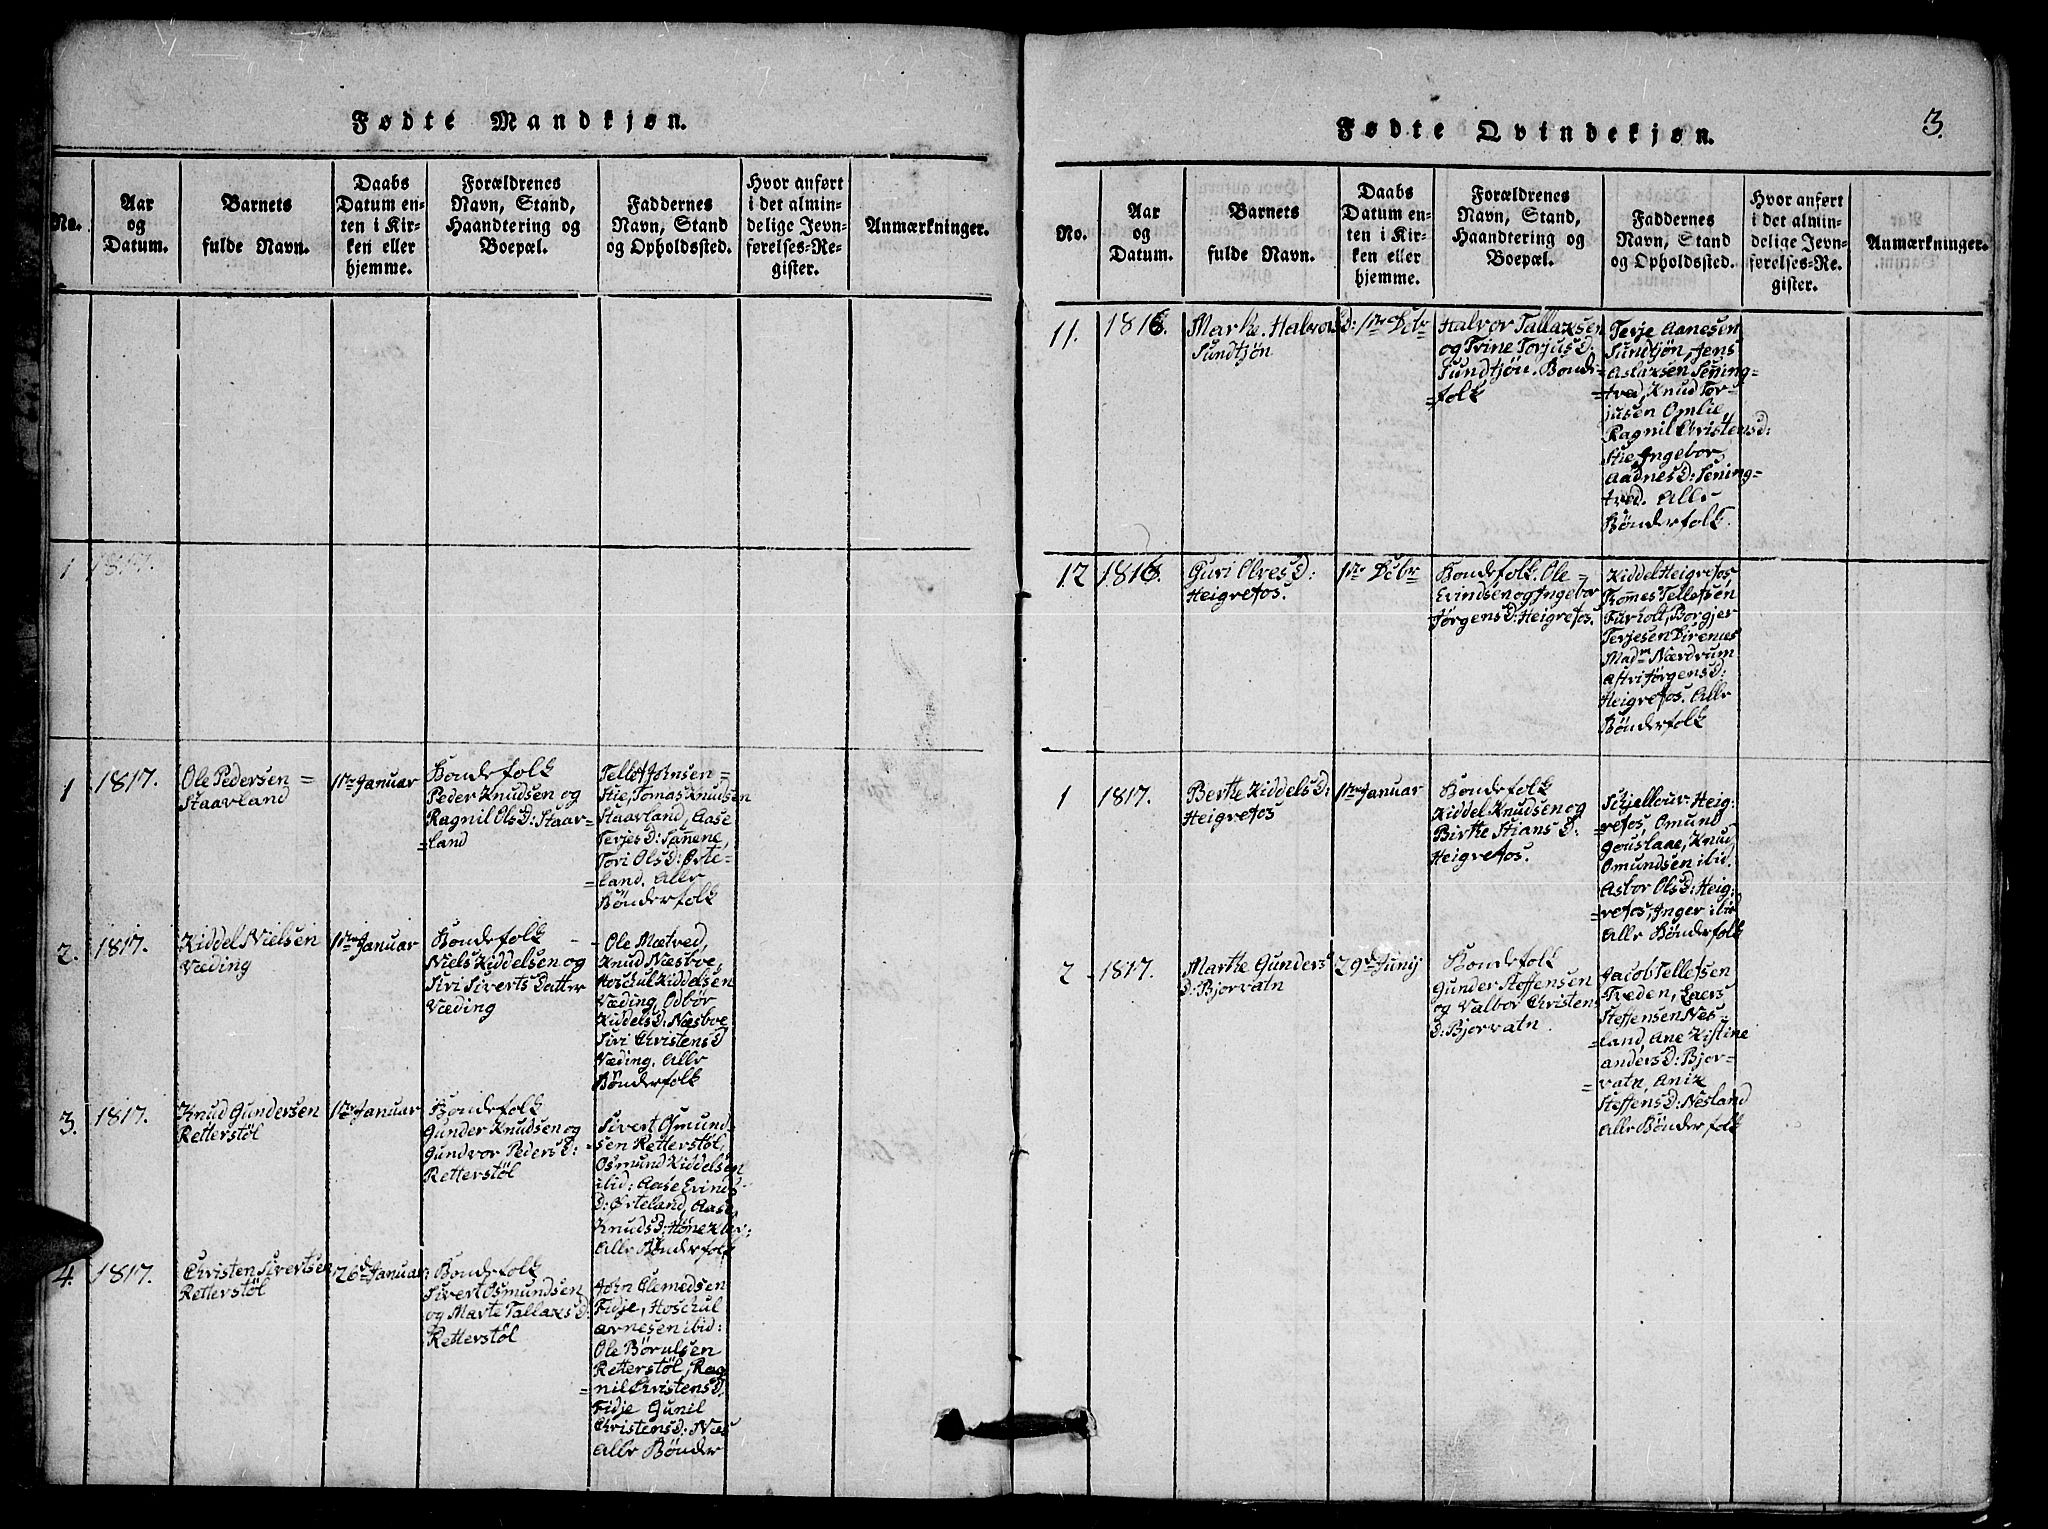 Fødte Mandkjøn.
No.
Aar
og
Datum.
Barnets
fulde Navn.
Daabs
Datum en-
ten i Kir-
ken eller
hjemme.
Forældrenes
Navn, Stand,
Haandtering og
Boepæl.
Faddernes
Navn, Stand
og Opholdssted.
Hvor anført
i det almin-
delige Jevn-
førelses-Re-
gister.
Anmærkninger.
1 1817.
1 1817.
Ole Pedersen =
Staarland
1ste Januar
Bondefolk
Peder Knudsen og
Ragnil OlsD: Staar-
=land
Tellef Johnsen =
Stie, Tomas Knudsen
Staarland, Aase
TerjesD: Sannene,
Tori OlsD: Øste-
=land. Alle
Bønderfolk
2. 1817.
Kiddel Nielsen
Væding
1ste Januar
Bondefolk
Niels Kiddelsen og
Siri Siverts Datter
Væding
Ole Mætved,
Knud Næsboe,
Hoschul Kiddelsen
Væding, Odbør
KiddelsD: Næsboe
Siri ChristensD
Væding. Alle
Bønderfolk
3. 1817.
Knud Gundersen
Retterstöl
1ste Januar
Bondefolk
Gunder Knudsen og
Gundvor PedersD:
Retterstöl
Sivert Osmund-
sen Retterstöl,
Osmund Kiddelsen
ibid: Aase Evinds
D: Østeland, Aase
KnudsD:
Alle Bønderfolk
4. 1817.
Christen Sivertsen
Retterstöl
26d Januar:
Bondefolk
Sivert Osmundsen
og Marte TallaxsD:
Retterstöl
John Clemedsen
Fidje, Hoschul
Arnesen ibid:
Ole Börulsen
Retterstöl, Rag
=nil ChristensD.
Fidje Gunil
ChristensD: Næs
Alle Bønder
Fødte Qvindekjøn.
3.
No.
Aar
og
Datum.
Barnets
fulde Navn.
Daabs
Datum en-
ten i Kir-
ken eller
hjemme.
Forældrenes
Navn, Stand,
Haandtering og
Boepæl.
Faddernes
Navn, Stand
og Opholdssted.
Hvor anført
i det almin-
delige Jevn-
førelses-Re-
gister.
Anmærkninger.
11. 1816.
Marte HalvorsD:
Sundtjön
1ste Dcbr
Halvor Tallaxsen
og Tvine TorjusD:
Sundtjön. Bonde
=folk
Terje Aanesen
Sundtjön, Jens
Aslaxsen Sening-
=tved, Knud Tor-
jusen Omlie,
Ragnil ChristensD:
Stie, Ingebor
AadnesD: Sening-
tved. Alle
Bönderfolk.
12 1816.
Guri OlvesD:
Heigrefos.
1ste Dcbr
Bondefolk. Ole =
Evindsen og Ingebor
JørgensD: Heigrefos.
Kiddel Heigrefos
Tomes Tellefsen
Furholt, Borgjer
Terjesen Birenæs
Madm Nærdrum
Astri JørgensD:
Heigrefos. Alle
Bönderfolk
1 1817.
Berthe KiddelsD:
Heigrefos
1ste Januar
Bondefolk
Kiddel Knudsen og
Birthe StiansD:
Heigrefos.
Schjellour Heig:
=refos, Omund
Gouslaae, Knud
Omundsen ibid.
Asbor OlsD: Heig:
=refos, Inger ibid
Alle Bønderfolk
2 1817.
Marthe Gunders
D: Bjorvatn
29d Junij
Bondefolk
Gunder Stoffensen
og Valbor Christens
D: Bjorvatn.
Jacob Tellefsen
Tveden, Laers
Steffensen Nes-
=land, Ane Kistine
AndersD: Bjor-
=vatn, Anix
SteffensD: Nesland
Alle Bønderfolk